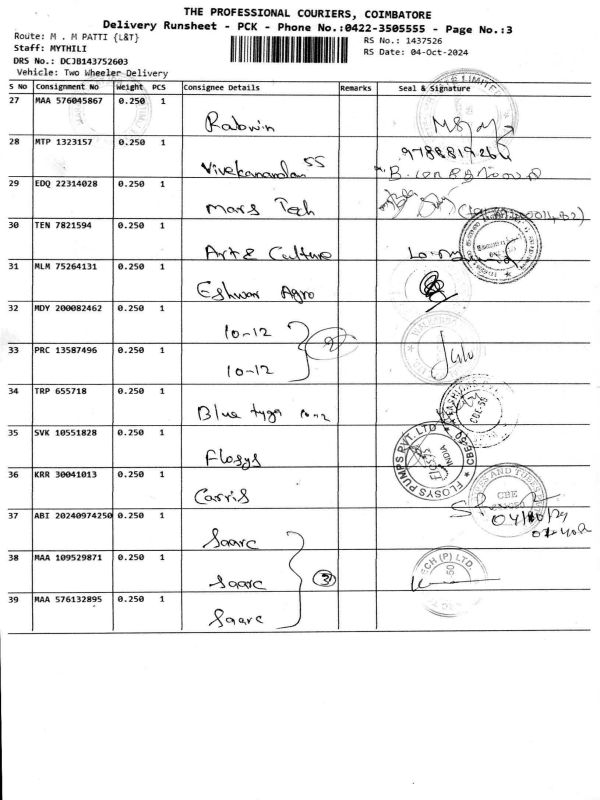 THE PROFESSIONAL COURIERS, COIMBATORE
Delivery Runsheet - PCK - Phone No.:0422-3505555 - Page No.:3
Route: M . M PATTI {L&T}
RS No.: 1437526
Staff: MYTHILI
RS Date: 04-Oct-2024
DRS No.: DCJB143752603
Vehicle: Two Wheeler Delivery
S No Consignment No Weight PCS Consignee Details Remarks Seal & Signature
27 MAA 576045867 0.250 1
28 MTP 1323157 0.250 1
Vivekanandan SS
29 EDQ 22314028 0.250 1
Mars Tech
30 TEN 7821594 0.250 1
Art & Culture
31 MLM 75264131 0.250 1
Eshwar Agro
32 MDY 200082462 0.250 1
10-12
2
33 PRC 13587496 0.250 1
10-12
34 TRP 655718 0.250 1
Blue
CBE-56
35 SVK 10551828 0.250 1
Flosys
FLOSYS PUMPS PVT. LTD CBE-50
INDIA
36 KRR 30041013 0.250 1
Carris
CBE
37 ABI 20240974250 0.250 1
Saarc
04/10/24
38 MAA 109529871 0.250 1
Saarc
3
TECH (P) LTD.
39 MAA 576132895 0.250 1
Saarc